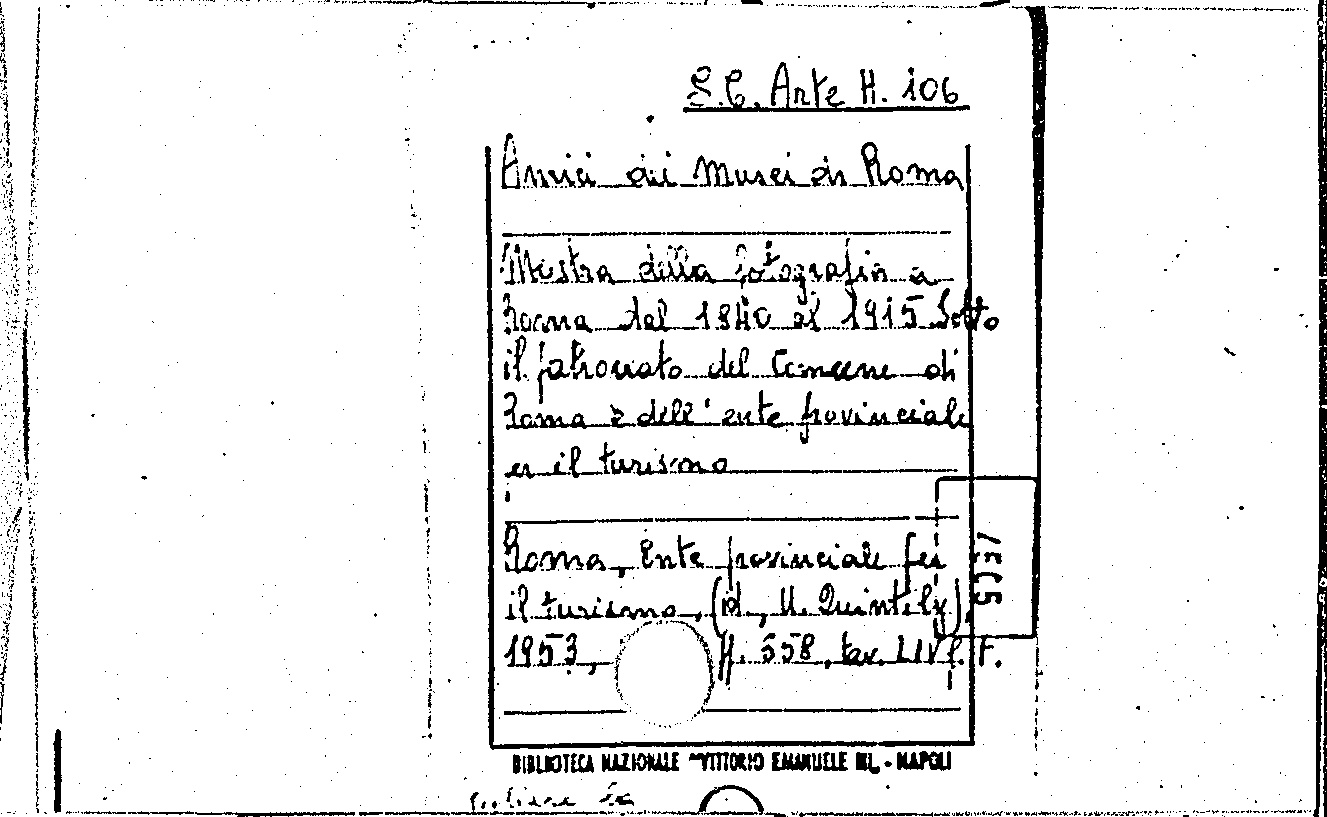 S.C. Arte H. 106
Amici dei Musei di Roma
Mostra della fotografia a
Roma dal 1840 al 1915 Sotto
il patronato del Comune di
Roma e dell'ente provinciale
er il turismo
Roma, Ente provinciale per
il turismo, (id, U. Quintily),
1953, H. 558, tav. LIV f. t.
BIBLIOTECA NAZIONALE "VITTORIO EMANUELE III„ - NAPOLI